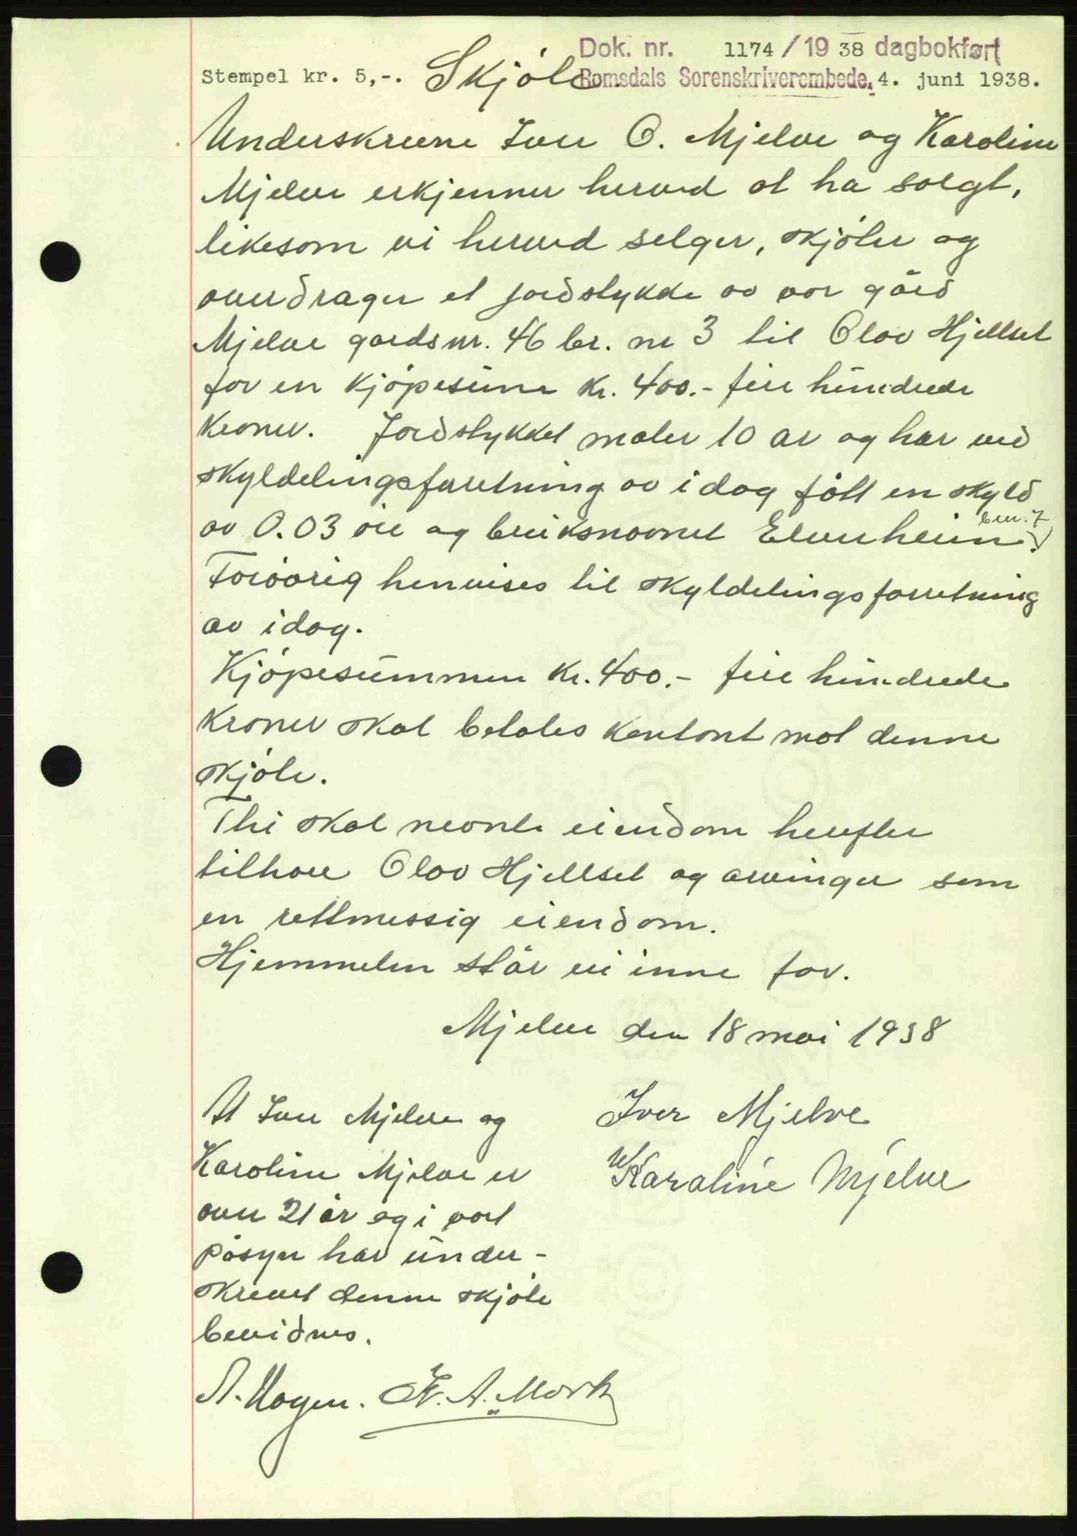 Dok. nr. 1174 / 19 38 dagbokført
Stempel kr. 5,-. Skjöte Romsdals Sorenskriverembede, 4. juni 1938.
Underskrevne Iver O. Mjelve og Karoline
Mjelve erkjenner herved at ha solgt,
likesom vi herved selger, skjöter og
overdrager et jordstykke av vor gård
Mjelve gardsnr. 46 br. nr 3 til Olav Hjellset
for en kjöpesum kr. 400.- fire hundrede
kroner. Jordstykket måler 10 ar og har ved
skyldelingsforretning av idag fått en skyld
av 0.03 øre og bruksnavnet Elveheim br.nr. 7.
Forövrig henvises til skyldelingsforretning
av idag.
Kjöpesummen kr. 400.- fire hundrede
kroner skal betales kontant mot denne
skjöte.
Thi skal nevnte eiendom herefter
tilhøre Olav Hjellset og arvinger som
en rettmessig eiendom.
Hjemmelen står vi inne for.
Mjelve den 18 mai 1938
At Iver Mjelve og
Karoline Mjelve er
over 21 år og i vort
påsyn har under-
skrevet denne skjöte
bevidnes.
Iver Mjelve
Karoline Mjelve
A. Hagen. A. Mork